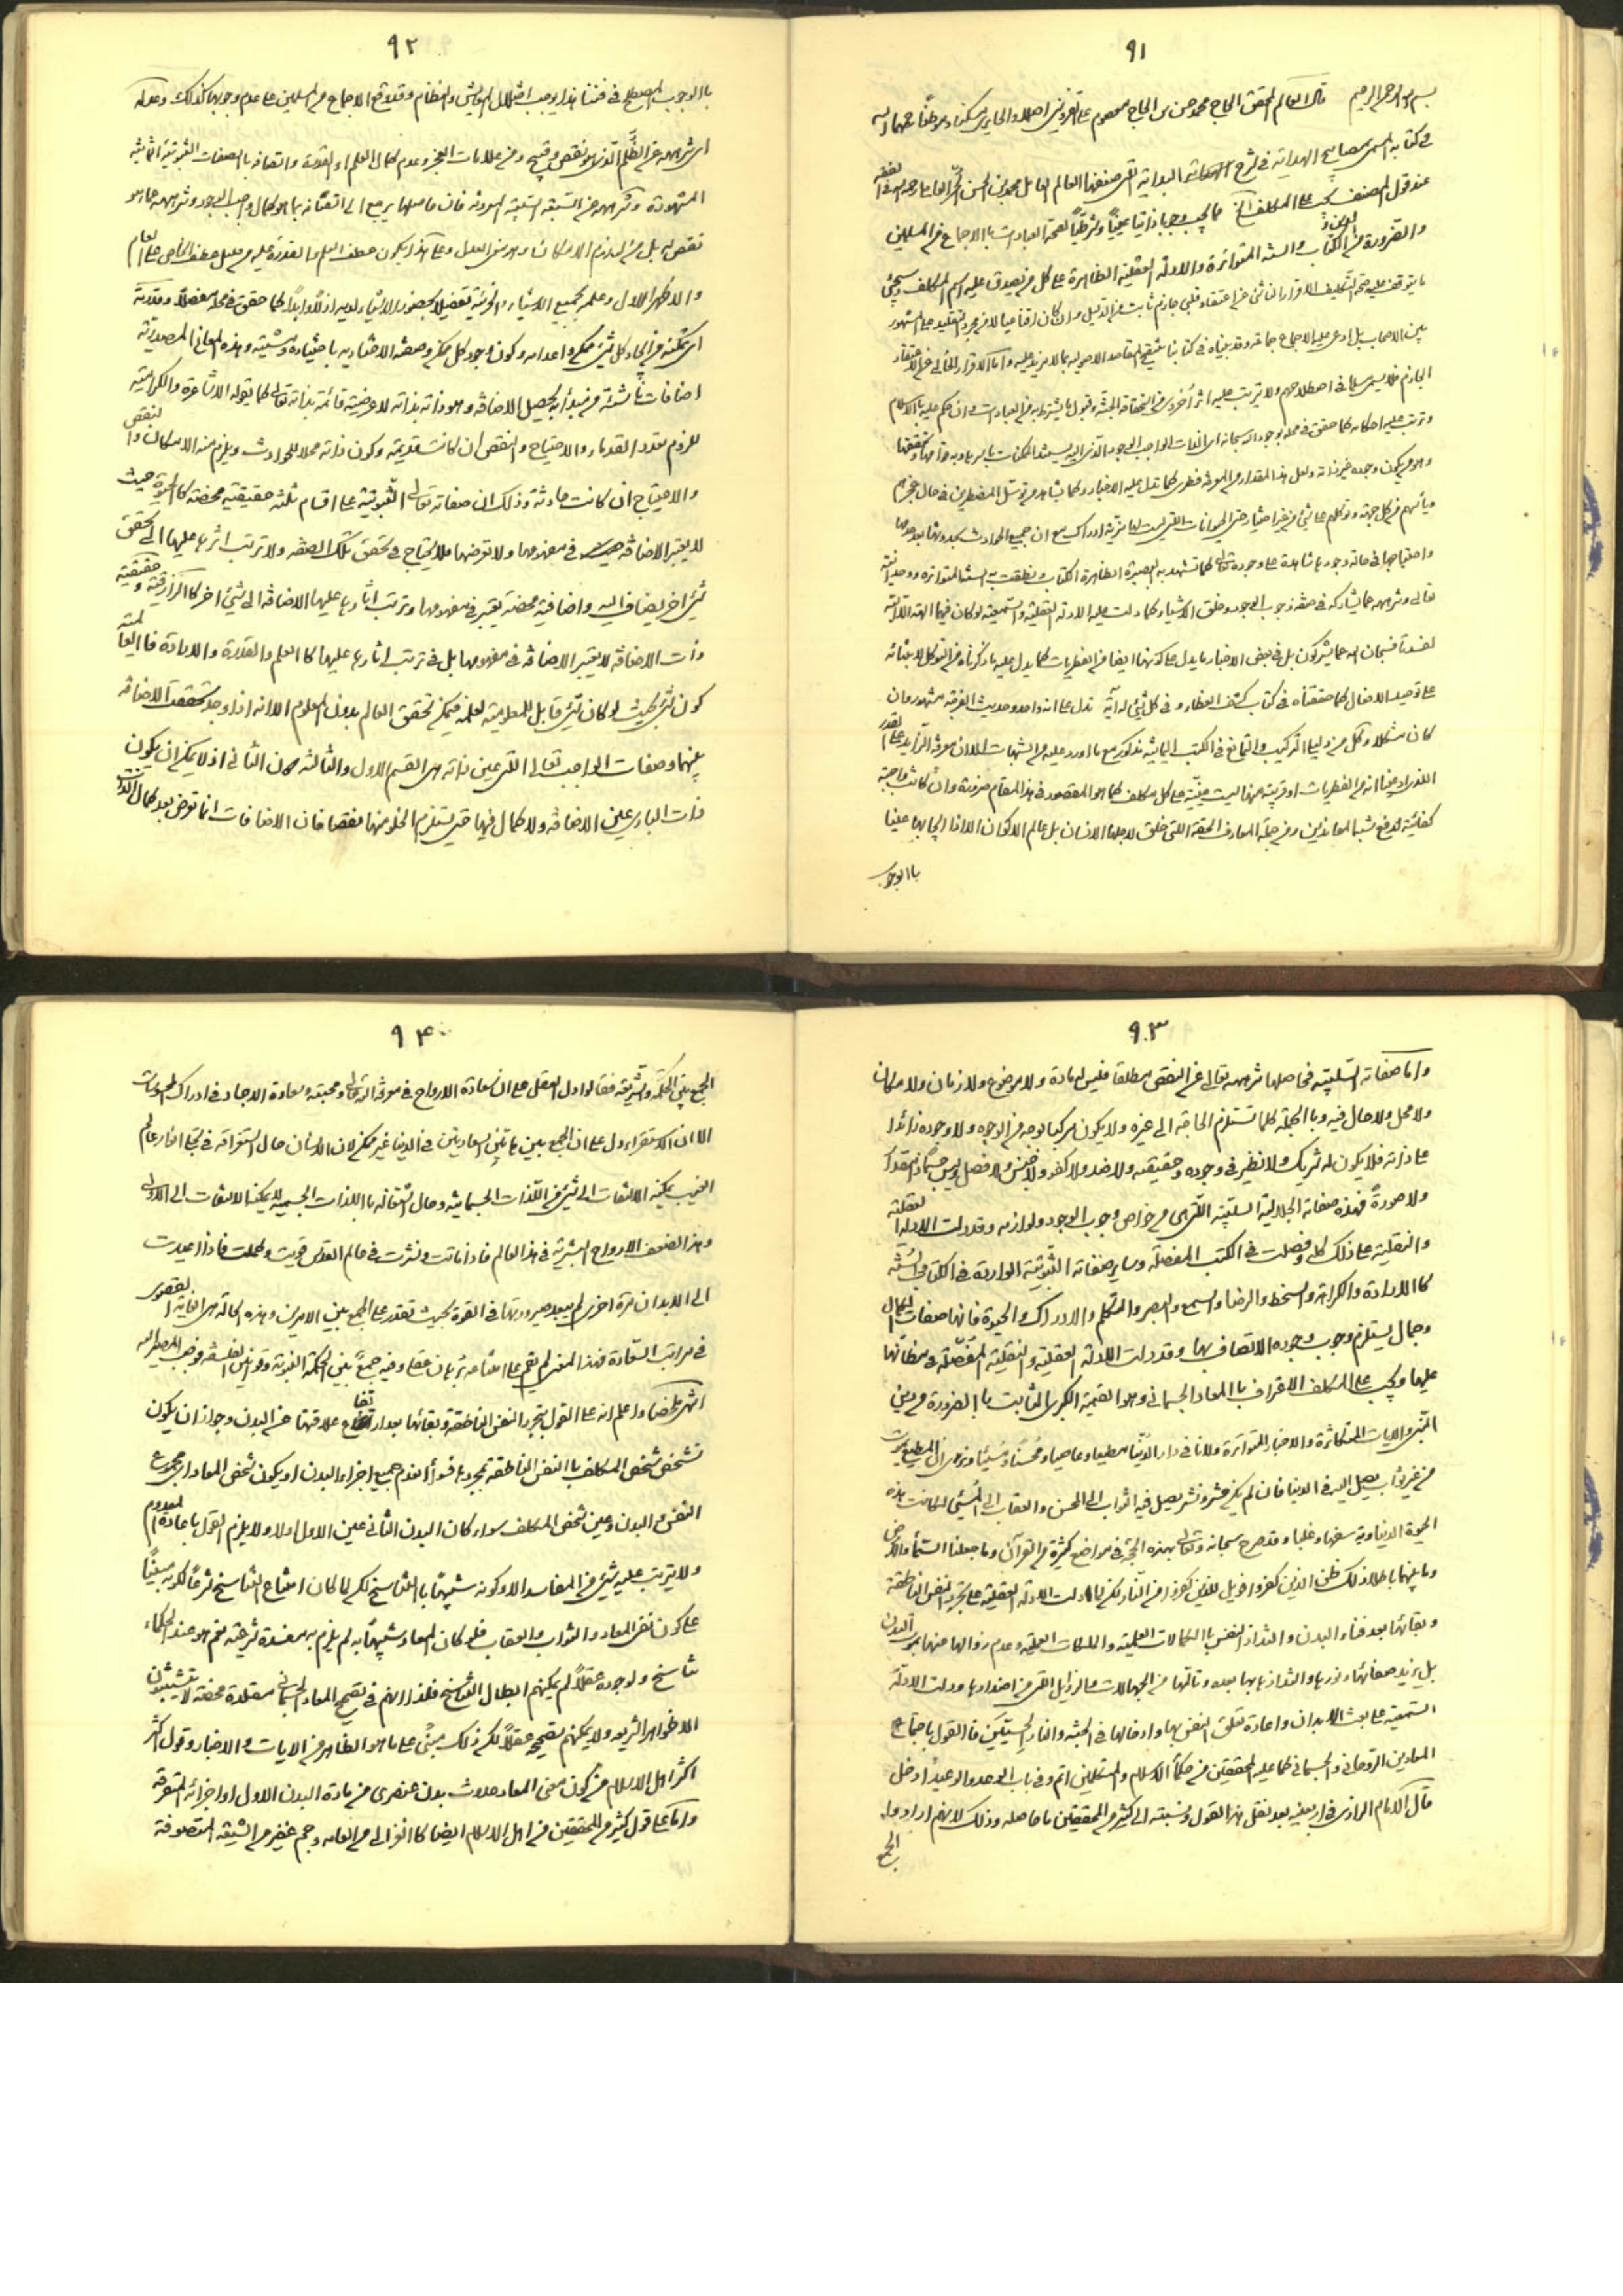 ٩١
بسم الله الرحمن الرحيم قال العالم المحقق الحاج محمد حسن بن الحاج معصوم القزويني اصلا والحايري مسكنا
في كتابه المسمى بمصابيح الهداية في شرح البداية التي صنفها العالم العامل محمد بن الحسن الحر العاملي
عند قول المصنف يجب على المكلف الخ فا يجب وجوبا ذاتيا عينيا وشرطيا لصحة العبادات بالاجماع من المسلمين
والضرورة من الكتاب والسنة المتواترة والادلة العقلية الظاهرة على كل من يصدق عليه اسم المكلف
ما يتوقف عليه صحة التكليف الاقرار الناشئ عن اعتقاد قلبي جازم ثابت من الدليل وان كان اقناعيا لا من مجرد التقليد على المشهور
بين الاصحاب بل ادعى عليه الاجماع جماعة وقد بيناه في كتابنا تنقيح المقاصد الاصولية بما لا مزيد عليه واما الاقرار الخالي عن الاعتقاد
الجازم فلا يسمى اسلاما في اصطلاحهم ولا يترتب عليه اثر اخروي من استحقاق الجنة وقبول ما يشترط به من العبادات وان حكم عليه بالاسلام
وترتب عليه احكامه كما حقق في محله بوجود الله سبحانه اي الذات الواجب الوجود الذي اليه يستند الممكنات باسرها وبه قوامها وتحققها
وهو من يكون وجوده عين ذاته ولعل هذا المقدار من المعرفة فطري كما تدل عليه الاخبار وكما يشاهد من توسل المضطرين في حال
تعالى وتنزيهه عما يشاركه في صفة وجوب الوجود وخلق الاشياء كما دلت عليه الادلة العقلية والسمعية لو كان فيهما الهة الا الله
لفسدتا فسبحان الله عما يشركون بل في بعض الاخبار ما يدل على كونها ايضا من الفطريات كما يدل عليه ما ذكرناه من التوكل
على توحيد الافعال كما حققناه في كتاب كشف الغطاء وفي كل شئ له اية تدل على انه واحد وحديث الفرجة مشهور وان
كفائية لدفع شبه المعاندين ومن جملة المعارف الحقة التي خلق لاجلها الانسان بل عالم الاكوان
بالوجوب
٩٢
بالوجوب المصطلح في فننا هذا يوجب اختلال العيش والنظام وقد وقع الاجماع من المسلمين على عدم وجوبها كذلك وعدله
اي تنزيهه عن الظلم الذي هو نقص وقبيح ومن علامات العجز وعدم كمال العلم او القدرة واتصافه بالصفات الثبوتية الثمانية
المشهورة وتنزيهه عن السبعة السلبية المعروفة فان حاصلها يرجع الى اتصافه بما هو كمال واجب الوجود وتنزيهه عما هو
نقص له بل من لوازم الامكان وهو معنى العدل وعلى هذا يكون عطف العلم والقدرة عليه من قبيل عطف الخاص على العام
والاظهر الاول وعلمه بجميع الاشياء والجزئية تفصيلا بحضور الاشياء لديه ازلا وابدا كما حقق في محله مفصلا وقدرته
اي تمكنه من ايجاد كل شئ ممكن واعدامه وكون وجود كل ممكن وصفته الاختيارية باختياره ومشيته وهذه المعاني المصدرية
اضافات ناشئة من مبدأ به تحصيل الاضافة وهو ذاته بذاته لا عرضية قائمة بذاته تعالى كما يقوله الاشاعرة والكرامية
للزوم تعدد القدماء والاحتياج والنقص ان كانت قديمة وكون ذاته محلا للحوادث ويلزم منه الامكان والنقص
والاحتياج ان كانت حادثة وذلك ان صفاته تعالى الثبوتية على اقسام ثلثة حقيقية محضة كالحيوة حيث
لا يعتبر الاضافة في مفهومها ولا تعرضها فلا يحتاج في تحقق تلك الصفة ولا ترتب اثرها عليها الى تحقق
شئ اخر يضاف اليه واضافية محضة يعتبر في مفهومها وترتب اثارها عليها الاضافة الى شئ اخر كالرازقية وحقيقية
ذات الاضافة لا يعتبر الاضافة في مفهومها بل في ترتب اثارها عليها كالعلم والقدرة والارادة فالعالمية
كون الشئ بحيث لو كان شئ قابل للمعلومية لعلمه فيمكن تحقق العالم بدون المعلوم الا انه اذا وجد تحققت الاضافة
بينهما وصفات الواجب تعالى التي عين ذاته هي القسم الاول والثالث دون الثاني اذ لا يمكن ان يكون
ذات الباري عين الاضافة ولا كمال فيها حتى يستلزم الخلو منها نقصا فان الاضافات انما تعرض بعد كمال الذات
٩٣
واما صفاته السلبية فحاصلها تنزيهه تعالى عن النقص مطلقا فليس له مادة ولا موضوع ولا زمان ولا مكان
ولا محل ولا حال فيه وبالجملة كلما تستلزم الحاجة الى غيره ولا يكون مركبا بوجه من الوجوه ولا وجوده زائدا
على ذاته فلا يكون له شريك ولا نظير في وجوده وحقيقته ولا ضد ولا كفو ولا جنس ولا فصل وليس جسما ذا مقدار
ولا صورة فهذه صفاته الجلالية السلبية التي هي من خواص وجوب الوجود ولوازمه وقد دلت الادلة العقلية
والنقلية على ذلك كله وفصلت في الكتب المفصلة وساير صفاته الثبوتية الواردة في الكتاب والسنة
كالارادة والكراهة والسخط والرضا والسمع والبصر والتكلم والادراك والحيوة فانها صفات الكمال
وجمال يستلزم وجوب وجوده الاتصاف بها وقد دلت الادلة العقلية والنقلية المفصلة في مظانها
عليها ويجب على المكلف الاقرار بالمعاد الجسماني وهو القيمة الكبرى الثابت بالضرورة من دين
النبي والايات المتكاثرة والاخبار المتواترة ولانا في دار الدنيا مطيعا وعاصيا ومحسنا ومسيئا ونرى ان المطيع يموت
من غير ثواب يصل اليه في الدنيا فان لم يكن حشر ونشر يصل فيه الثواب الى المحسن والعقاب الى المسئ لكانت هذه
الحيوة الدنياوية سفها وعبثا وقد صرح سبحانه وتعالى بهذه الحجة في مواضع كثيرة من القرآن وما خلقنا السماء والارض
وما بينهما باطلا ذلك ظن الذين كفروا فويل للذين كفروا من النار لكن لما دلت الادلة العقلية على تجرد النفس الناطقة
وبقائها بعد فناء البدن والتذاذ النفس بالكمالات العلمية والملكات العملية وعدم زوالها منها بموت البدن
بل يزيد صفائها ونورها والتذاذها بها بعده وتالمها من الجهالات والرذايل التي هي اضدادها ودلت الادلة
السمعية على بعث الابدان واعادة تعلق النفس بها وادخالها في الجنة والنار الحسيتين فالقول باجتماع
المعادين الروحاني والجسماني كما عليه المحققين من حكماء الاسلام والمتكلمين اتم وفي باب الوعد والوعيد ادخل
قال الامام الرازي في اربعينه بعد نقل هذا القول ونسبته الى كثير من المحققين ما حاصله وذلك لانهم ارادوا
الجمع
٩٤
الجمع بين الحكمة والشريعة فقالوا دل العقل على ان سعادة الارواح في معرفة الله تعالى ومحبته وسعادة الاجساد في ادراك المحسوسات
الا ان الاستقراء دل على ان الجمع بين هاتين السعادتين في الدنيا غير ممكن لان الانسان حال استغراقه في تجلي انوار عالم
الغيب لا يمكنه الالتفات الى شئ من اللذات الجسمانية وحال اشتغاله باللذات الجسمية لا يمكنه الالتفات الى
وهذا لضعف الارواح البشرية في هذا العالم فاذا ماتت ونشرت في عالم القدس قويت وكملت فاذا اعيدت
الى الابدان مرة اخرى لم يبعد صيرورتها في القوة بحيث تقدر على الجمع بين الامرين وهذه الحالة هي الغاية القصوى
في مراتب السعادة فهذا المعنى لم يقم على امتناعه برهان عقلي وفيه جمع بين الحكمة النبوية وقوانين الفلسفة فوجب المصير اليه
انتهى ملخصا واعلم انه على القول بتجرد النفس الناطقة وبقائها بعد ارتفاع علاقتها عن البدن وجواز ان يكون
تشخص شخص المكلف بالنفس الناطقة بمجردها فسواء انعدم جميع اجزاء البدن او يكون شخص المعاد اي مجموع
النفس والبدن وعين شخص المكلف سواء كان البدن الثاني عين الاول اولا ولا يلزم القول باعادة المعدوم
ولا يترتب عليه شئ من المفاسد الا كونه شبيها بالتناسخ لكن لما كان امتناع التناسخ شرعا لكونه مبنيا
على كون نفي المعاد والثواب والعقاب فلو كان المعاد شبيها به لم يلزم به مفسدة شرعية نعم هو عند الحكماء
تناسخ ولوجوده عقلا لم يمكنهم ابطال التناسخ فلذا انهم في تصحيح المعاد الجسماني مقلدة محضة لا يتشبثون
الا ظواهر الشريعة ولا يمكنهم تصحيحه عقلا لكن ذلك مبني على ما هو الظاهر من الايات والاخبار وقول اكثر
اكثر اهل الاسلام من كون معنى المعاد حدوث بدن عنصري من مادة البدن الاول او اجزائه المتفرقة
واما على قول كثير من المحققين من اهل الاسلام ايضا كالغزالي من العامة وجم غفير من الشيعة المتصوفة